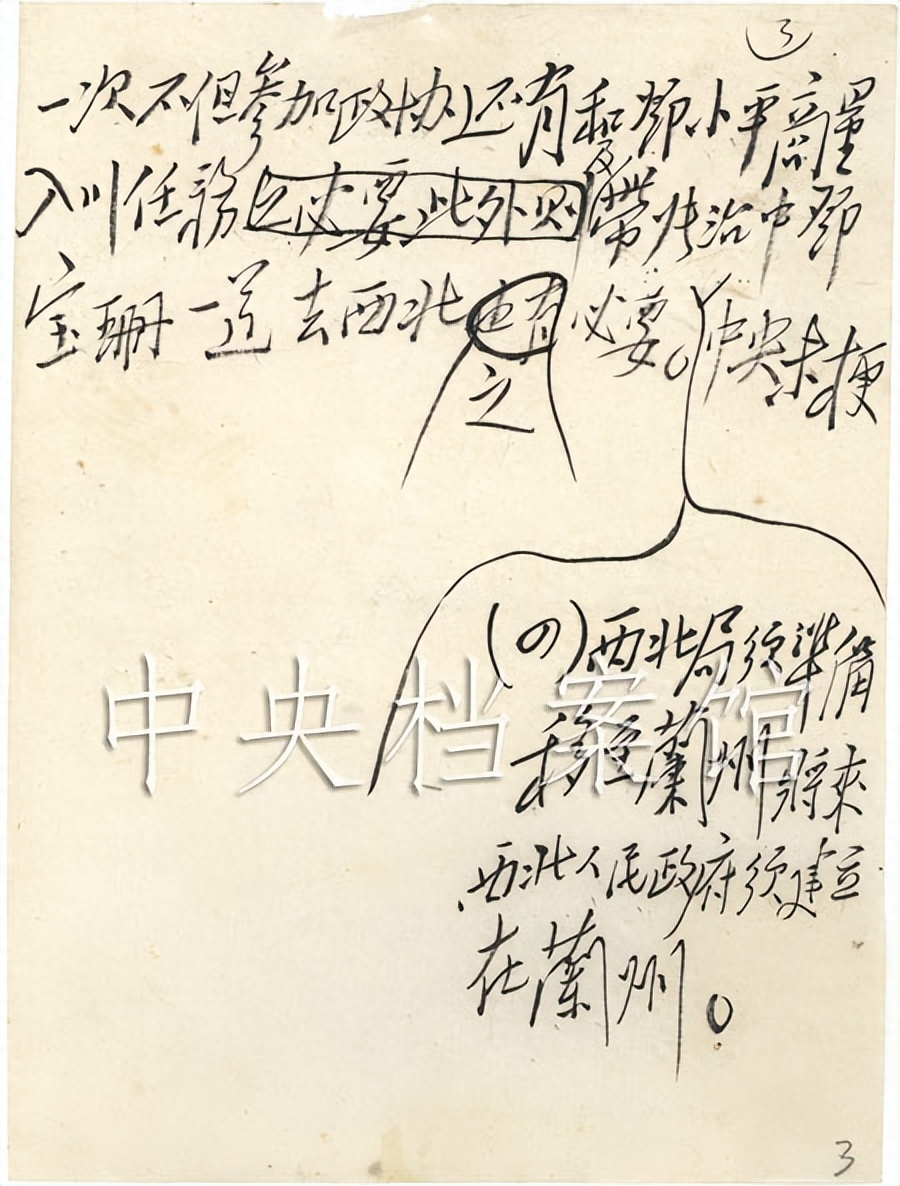 ③
一次不但参加政协还有和鄧小平商量
入川任務之必要此外则及带张治中鄧
宝珊一道去西北也有必要。中央未梗
之
(四)西北局须準備
移至蘭州将來
西北人民政府须建立
在蘭州。
中央档案馆
3